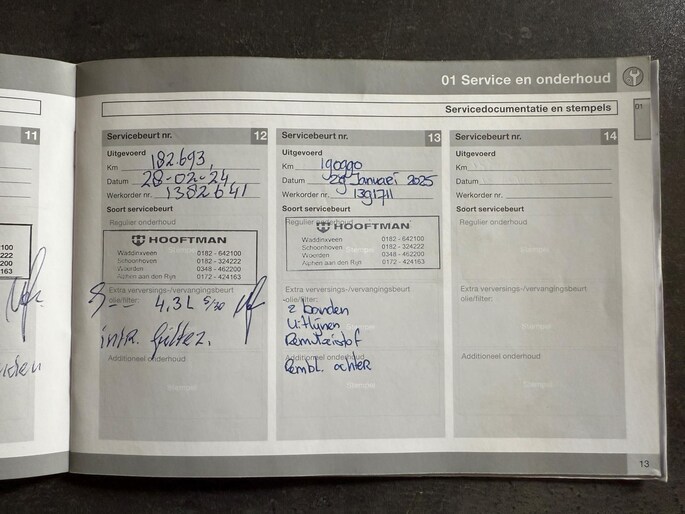 01 Service en onderhoud
Servicedocumentatie en stempels
01
11
100
222
200
163
Servicebeurt nr. 12
Uitgevoerd
Km 182.693,
Datum 28-02-24
Werkorder nr. 1382641
Soort servicebeurt
Regulier onderhoud
HOOFTMAN
Waddinxveen 0182 - 642100
Schoonhoven 0182 - 324222
Woerden 0348 - 462200
Alphen aan den Rijn 0172 - 424163
Extra verversings-/vervangingsbeurt
olie/filter: 4,3 L 5/30
intr. filter.
Additioneel onderhoud
Stempel
Servicebeurt nr. 13
Uitgevoerd
Km 190990
Datum 29 Januari 2025
Werkorder nr. 1391711
Soort servicebeurt
Regulier onderhoud
HOOFTMAN
Waddinxveen 0182 - 642100
Schoonhoven 0182 - 324222
Woerden 0348 - 462200
Alphen aan den Rijn 0172 - 424163
Extra verversings-/vervangingsbeurt
olie/filter:
2 banden
Uitlijnen
Remvloeistof
Additioneel onderhoud
Rembl. achter
Stempel
Servicebeurt nr. 14
Uitgevoerd
Km
Datum
Werkorder nr.
Soort servicebeurt
Regulier onderhoud
Stempel
Extra verversings-/vervangingsbeurt
olie/filter:
Additioneel onderhoud
Stempel
13